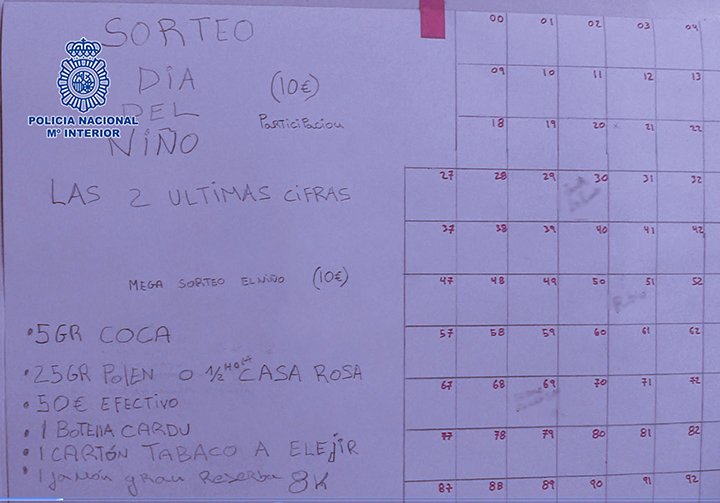 SORTEO
DIA
DEL
NIÑO
(10€)
Participacion
POLICÍA NACIONAL
Mº INTERIOR
LAS 2 ULTIMAS CIFRAS
MEGA SORTEO EL NIÑO (10€)
• 5GR COCA
• 25GR POlEN O 1/2 HORA CASA ROSA
• 50€ EFECTIVO
• 1 BOTEllA CARDU
• 1 CARTÓN TABACO A ELEJIR
• 1 jamón gran Reserba 8K
00 01 02 03 04
09 10 11 12 13
18 19 20 21 22
27 28 29 30 31 32
37 38 39 40 41 42
47 48 49 50 51 52
57 58 59 60 61 62
67 68 69 70 71 72
77 78 79 80 81 82
87 88 89 90 91 92